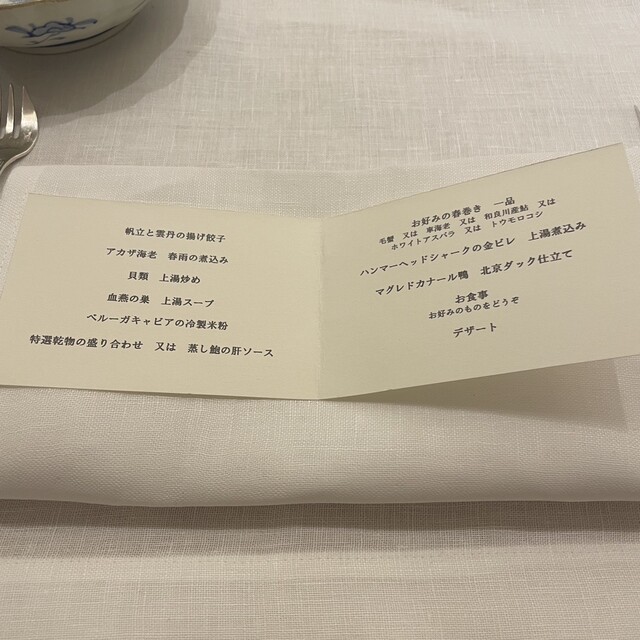 帆立と雲丹の揚げ餃子
アカザ海老　春雨の煮込み
貝類　上湯炒め
血燕の巣　上湯スープ
ベルーガキャビアの冷製米粉
特選乾物の盛り合わせ　又は　蒸し鮑の肝ソース
お好みの春巻き　一品
毛蟹　又は　車海老　又は　和良川産鮎　又は
ホワイトアスパラ　又は　トウモロコシ
ハンマーヘッドシャークの金ビレ　上湯煮込み
マグレドカナール鴨　北京ダック仕立て
お食事
お好みのものをどうぞ
デザート